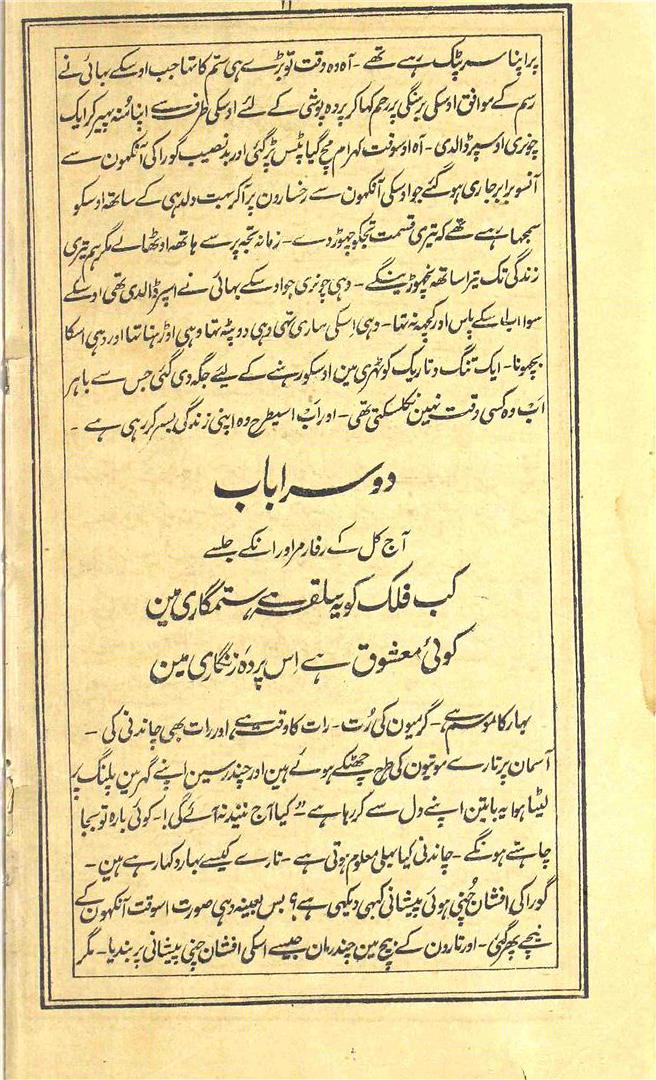 ۱۱
پر اپنا سر پٹک رہے تھے - آہ وہ وقت تو بڑے ہی ستم کا تھا جب اوسکے بھائی نے
رسم کے موافق اوسکی برہنگی پر رحم کہا کر پردہ پوشی کے لئے اوسکی طرف سے اپنا مُنہ پھیر کر ایک
چونری اوسپر ڈالدی - آہ اوسوقت کہرام مچ گیا پٹس پڑ گئی اور بدنصیب گورا کی آنکھون سے
آنسو برابر جاری ہو گئے جو اوسکی آنکھون سے رخسارون پر آ کر بہت دلدہی کے ساتھ اوسکو
سمجھا رہے تھے کہ تیری قسمت تجکو چھوڑ دے - زمانہ تجھ پر سے ہاتھ اوٹھالے مگر ہم تیری
زندگی تک تیرا ساتھ نچھوڑینگے - وہی چونری جو اوسکے بھائی نے اسپر ڈالدی تھی اوسکے
سوا اب اسکے پاس اور کچھ نہ تھا - وہی اِسکی ساری تھی وہی دوپٹہ تھا وہی اوڑھنا تھا اور وہی اسکا
بچھونا - ایک تنگ و تاریک کوٹھری مین اوسکو رہنے کے لیئے جگہ دی گئی جس سے باہر
اَب وہ کسی وقت نہین نکلسکتی تھی - اور اَب اسیطرح وہ اپنی زندگی بسر کر رہی ہے -
دوسرا باب
آج کل کے رفارمر اور انکے جلسے
کب فلک کو یہ سلیقہ ہے ستمگاری مین
کوئی معشوق ہے اِس پردۂ زنگاری مین
بہار کا موسم ہے - گرمیون کی رُت - رات کا وقت ہے اور رات بھی چاندنی کی -
آسمان پر تارے موتیون کی طرح چھٹکے ہوئے ہین اور چندرسین اپنے گھر مین پلنگ پر
لیٹا ہوا یہ باتین اپنے دل سے کر رہا ہے "کیا آج نیند نہ آئے گی! - کوئی بارہ تو بجا
چاہتے ہونگے - چاندنی کیا بھلی معلوم ہوتی ہے - تارے کیسے بہار دکھا رہے ہین -
گورا کی افشان چُنی ہوئی پیشانی کبھی دیکھی ہے؟ بس بعینہ وہی صورت اسوقت آنکھون کے
نیچے پھر گئی - اور تارون کے بیچ مین چندرمان جیسے اسکی افشان چنی پیشانی پر بندیا - مگر